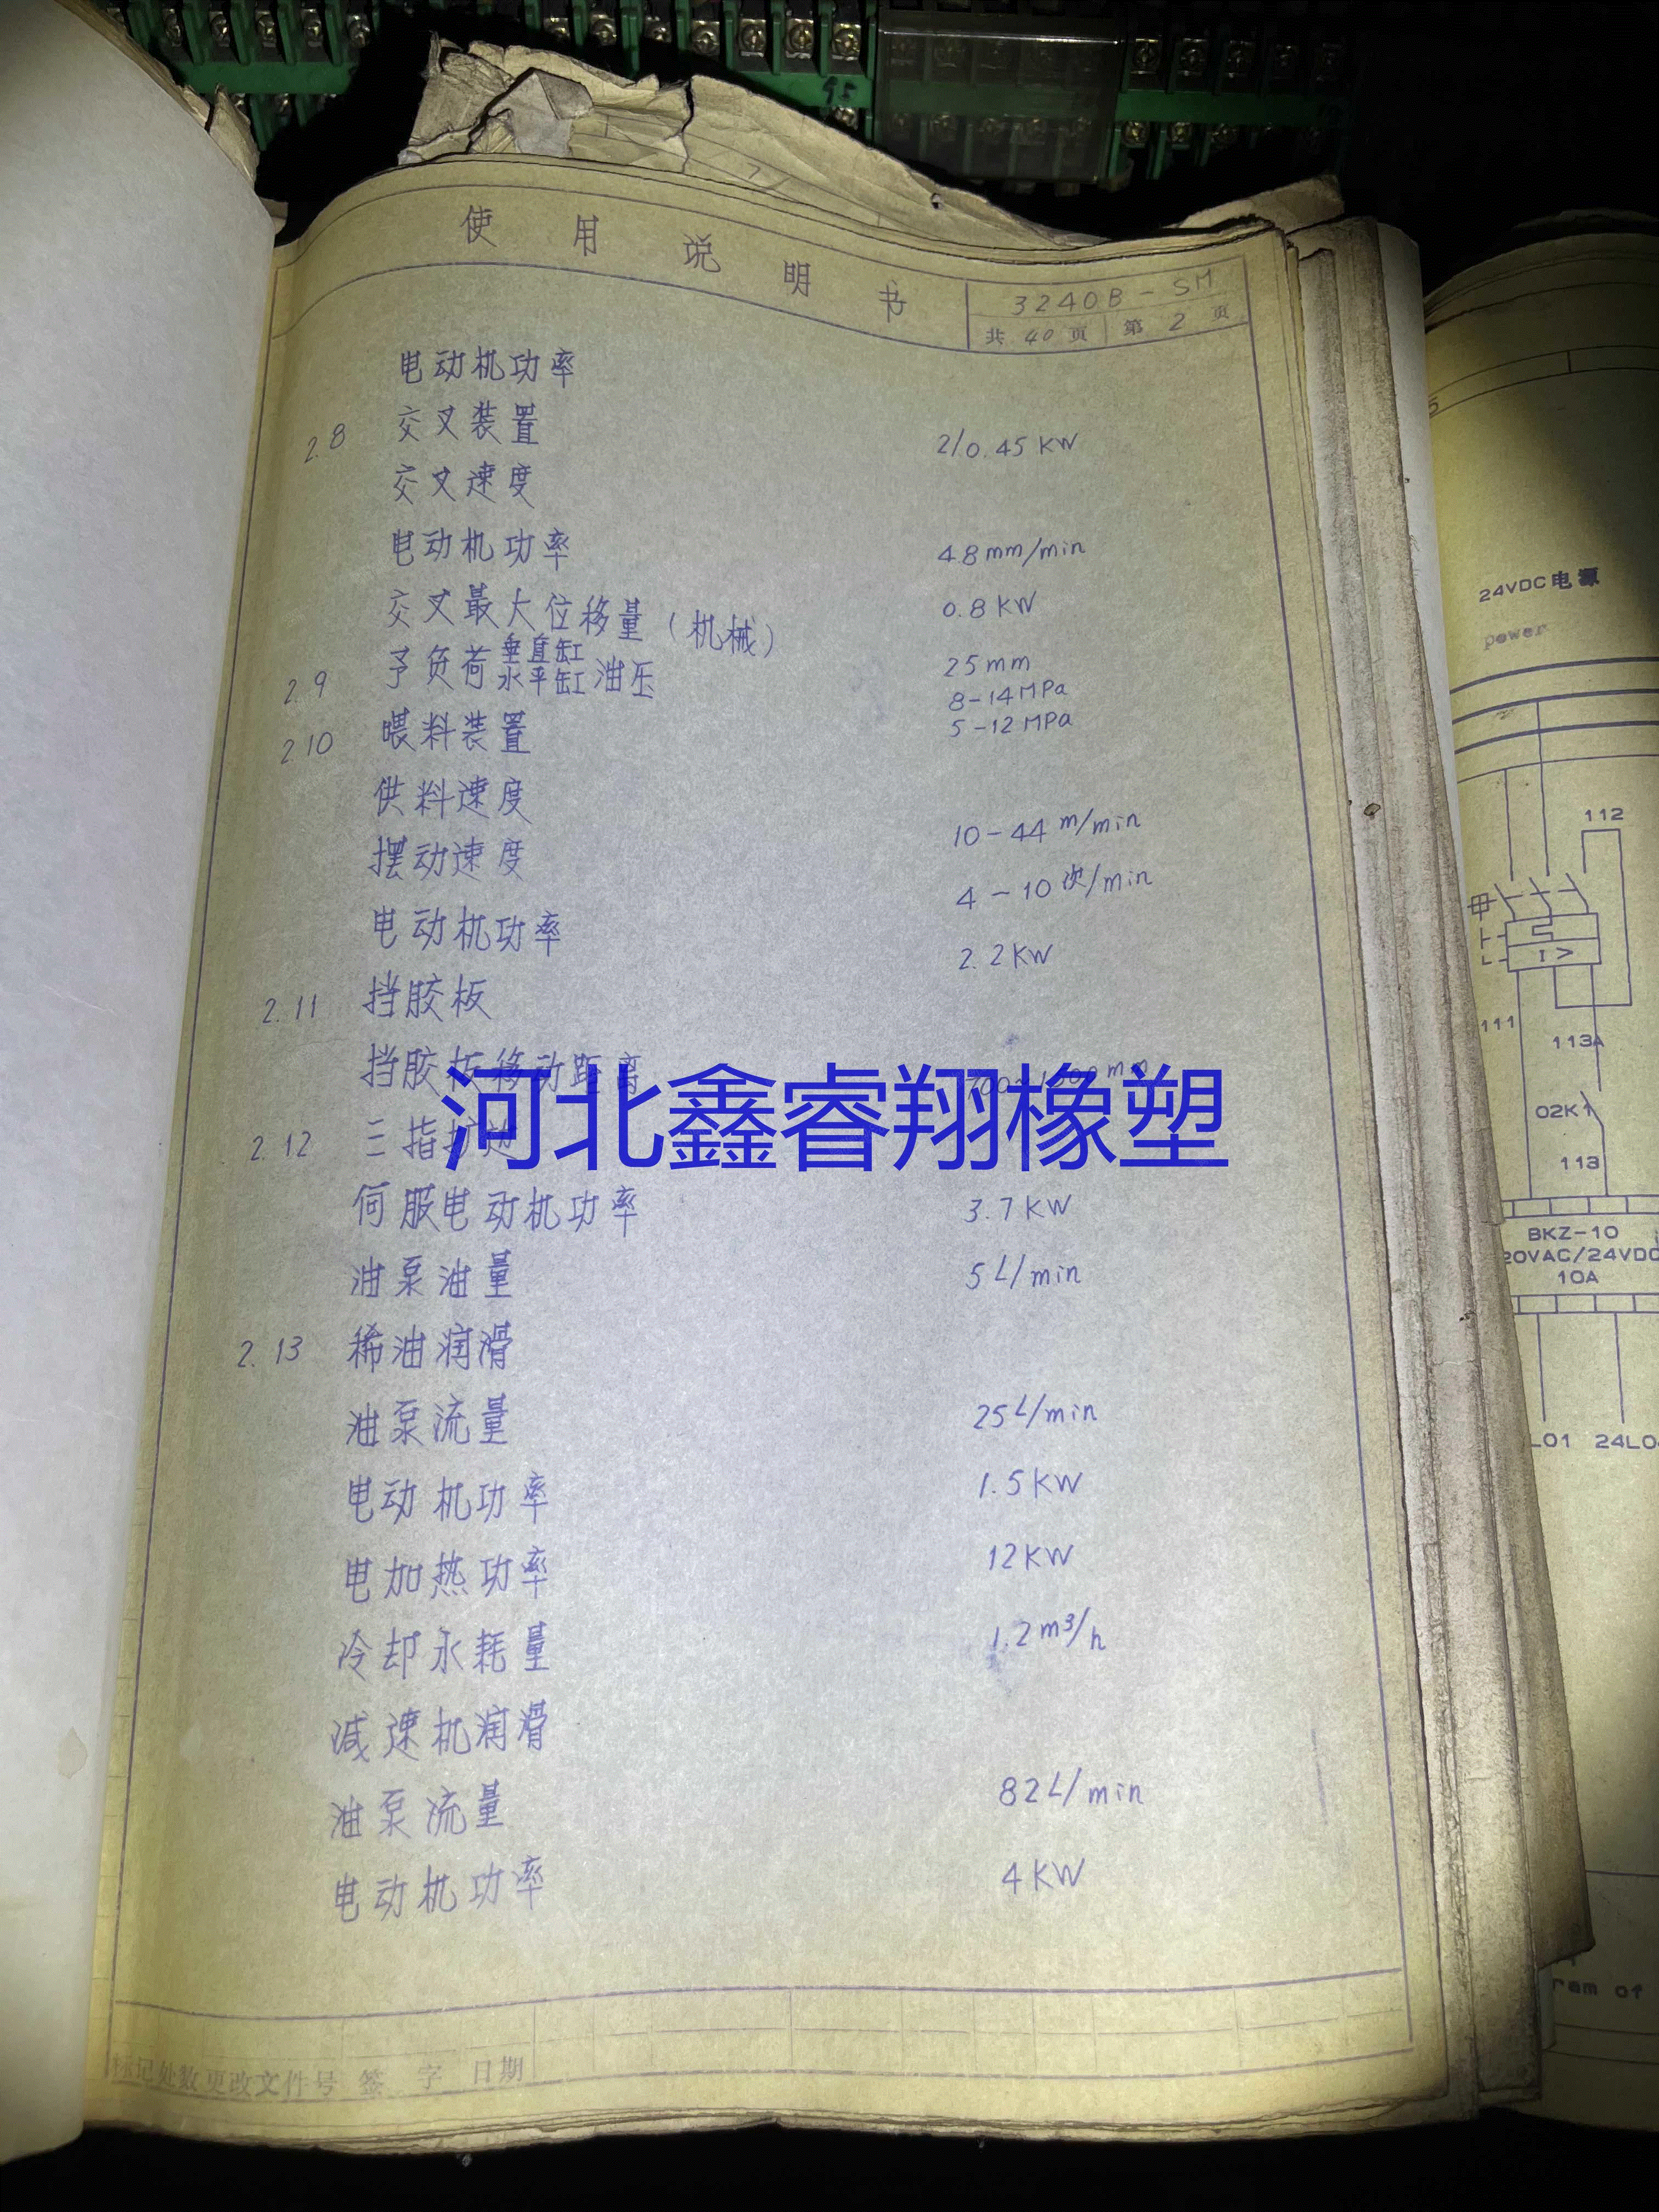 使用说明书
3240B-SM
共 40 页 第 2 页
电动机功率 2/0.45 KW
2.8 交叉装置
交叉速度 48mm/min
电动机功率 0.8 KW
交叉最大位移量(机械) 25mm
2.9 予负荷垂直缸油压 8-14MPa
水平缸 5-12MPa
2.10 喂料装置
供料速度 10-44 m/min
摆动速度 4-10次/min
电动机功率 2.2KW
2.11 挡胶板
挡胶板移动距离
河北鑫睿翔橡塑
2.12 三指扩边
伺服电动机功率 3.7KW
油泵油量 5L/min
2.13 稀油润滑
油泵流量 25L/min
电动机功率 1.5KW
电加热功率 12KW
冷却水耗量 1.2m³/h
减速机润滑
油泵流量 82L/min
电动机功率 4KW
标记 处数 更改文件号 签字 日期
95
24VDC电源
power
112
I>
111
113A
02K1
113
BKZ-10
20VAC/24VDC
10A
L01 24L0
ram of